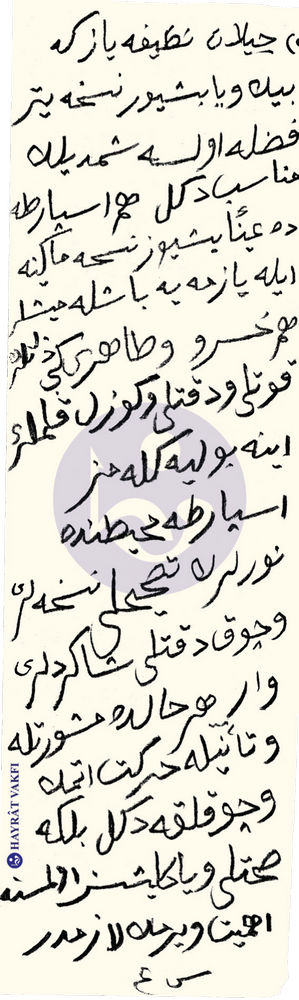 جيلان نظيفه يازركه
بيك ويا بشيوز نسخه يتر
فضله اولسه شمديلك
مناسب دكل هم اسپارطه
ده عيناً بشيوز نسخه ماكينه
ايله يازمه يه باشله مشلر
هم خسرو و طاهرى كبى ذاتلر
قوتلى ودقتلى وكوزل قلملرى
اينه بولويه كله مز
اسپارطه محيطنده
نورلرك تصحيحلى نسخه لرى
وچوق دقتلى شاكردلرى
وار هر حالده مشورتله
و تأنّيله حركت ايتمك
وچوقلقه دكل بلكه
صحتلى ويا كليشسز اولمسنه
اهميت ويرمك لازمدر
س ع
HAYRÂT VAKFI